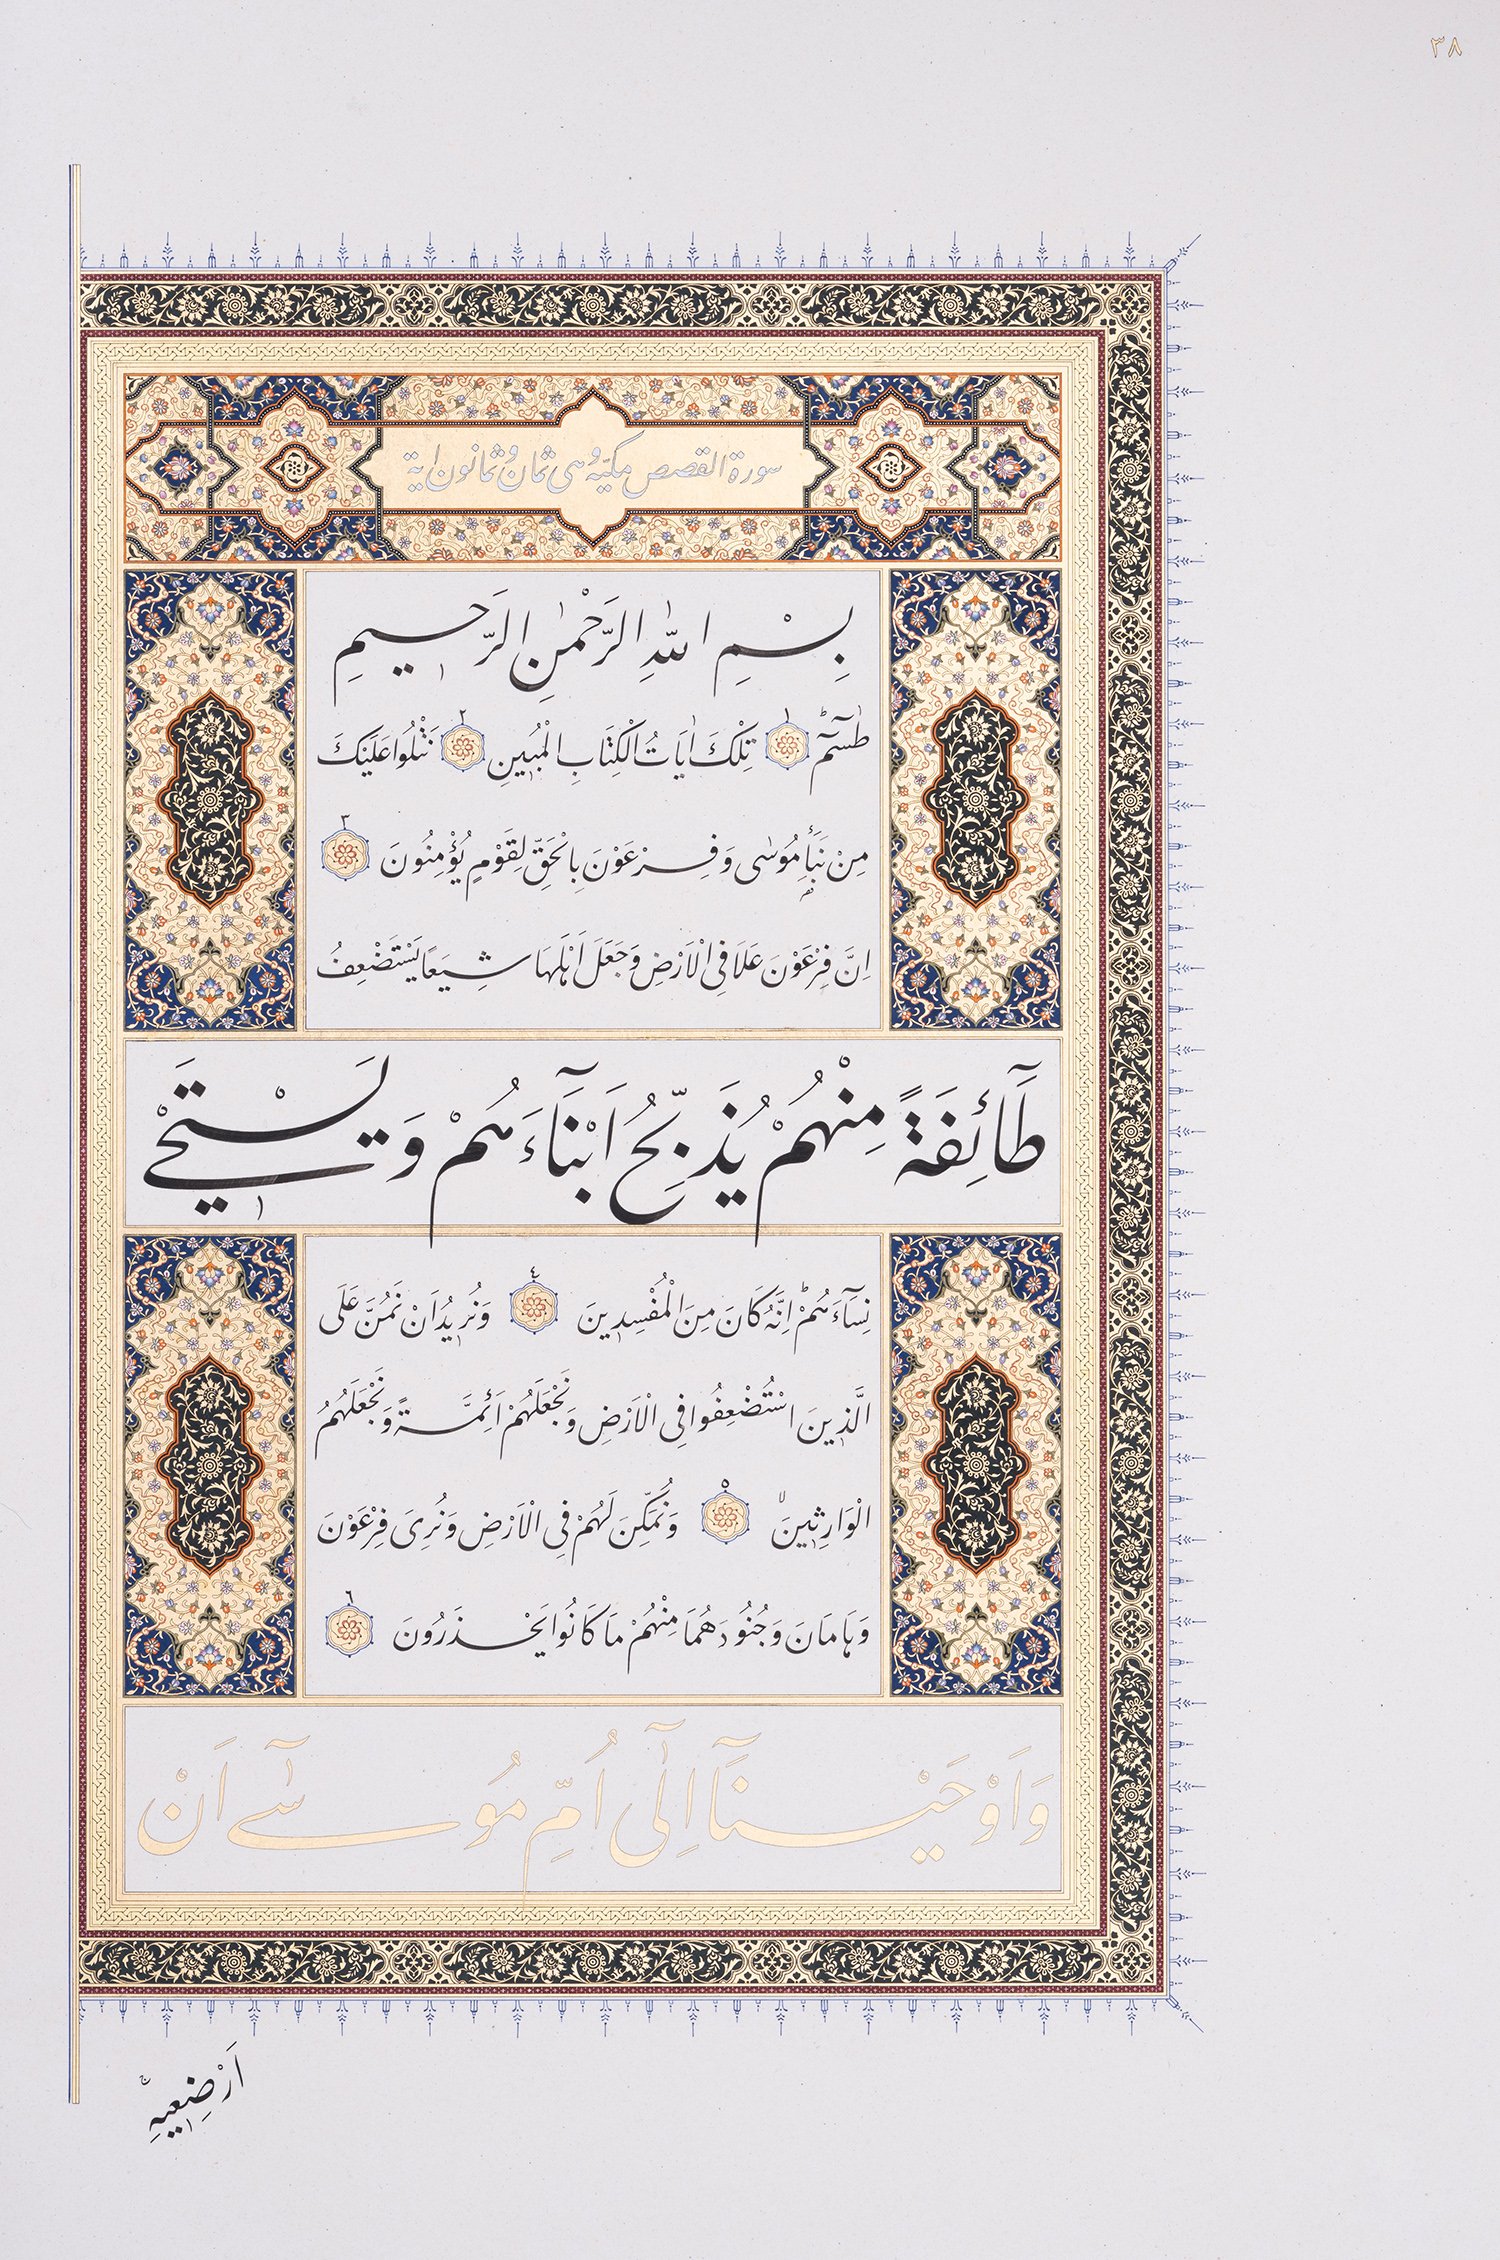 ٣٨
سورة القصص مكيّه وهى ثمان وثمانون اية
بِسْمِ اللّٰهِ الرَّحْمٰنِ الرَّحِيمِ
طٰسٓمٓ ١ تِلْكَ اٰيَاتُ الْكِتَابِ الْمُبِينِ ٢ نَتْلُوا عَلَيْكَ
مِنْ نَبَأِ مُوسٰى وَفِرْعَوْنَ بِالْحَقِّ لِقَوْمٍ يُؤْمِنُونَ ٣
اِنَّ فِرْعَوْنَ عَلَا فِى الْاَرْضِ وَجَعَلَ اَهْلَهَا شِيَعًا يَسْتَضْعِفُ
طَٓائِفَةً مِنْهُمْ يُذَبِّحُ اَبْنَٓاءَهُمْ وَيَسْتَحْيٖ
نِسَٓاءَهُمْ اِنَّهُ كَانَ مِنَ الْمُفْسِدٖينَ ٤ وَنُرٖيدُ اَنْ نَمُنَّ عَلَى
الَّذٖينَ اسْتُضْعِفُوا فِى الْاَرْضِ وَنَجْعَلَهُمْ اَئِمَّةً وَنَجْعَلَهُمُ
الْوَارِثٖينَ ٥ وَنُمَكِّنَ لَهُمْ فِى الْاَرْضِ وَنُرِىَ فِرْعَوْنَ
وَهَامَانَ وَجُنُودَهُمَا مِنْهُمْ مَا كَانُوا يَحْذَرُونَ ٦
وَاَوْحَيْنَٓا اِلٰٓى اُمِّ مُوسٰٓى اَنْ
اَرْضِعٖيهِ